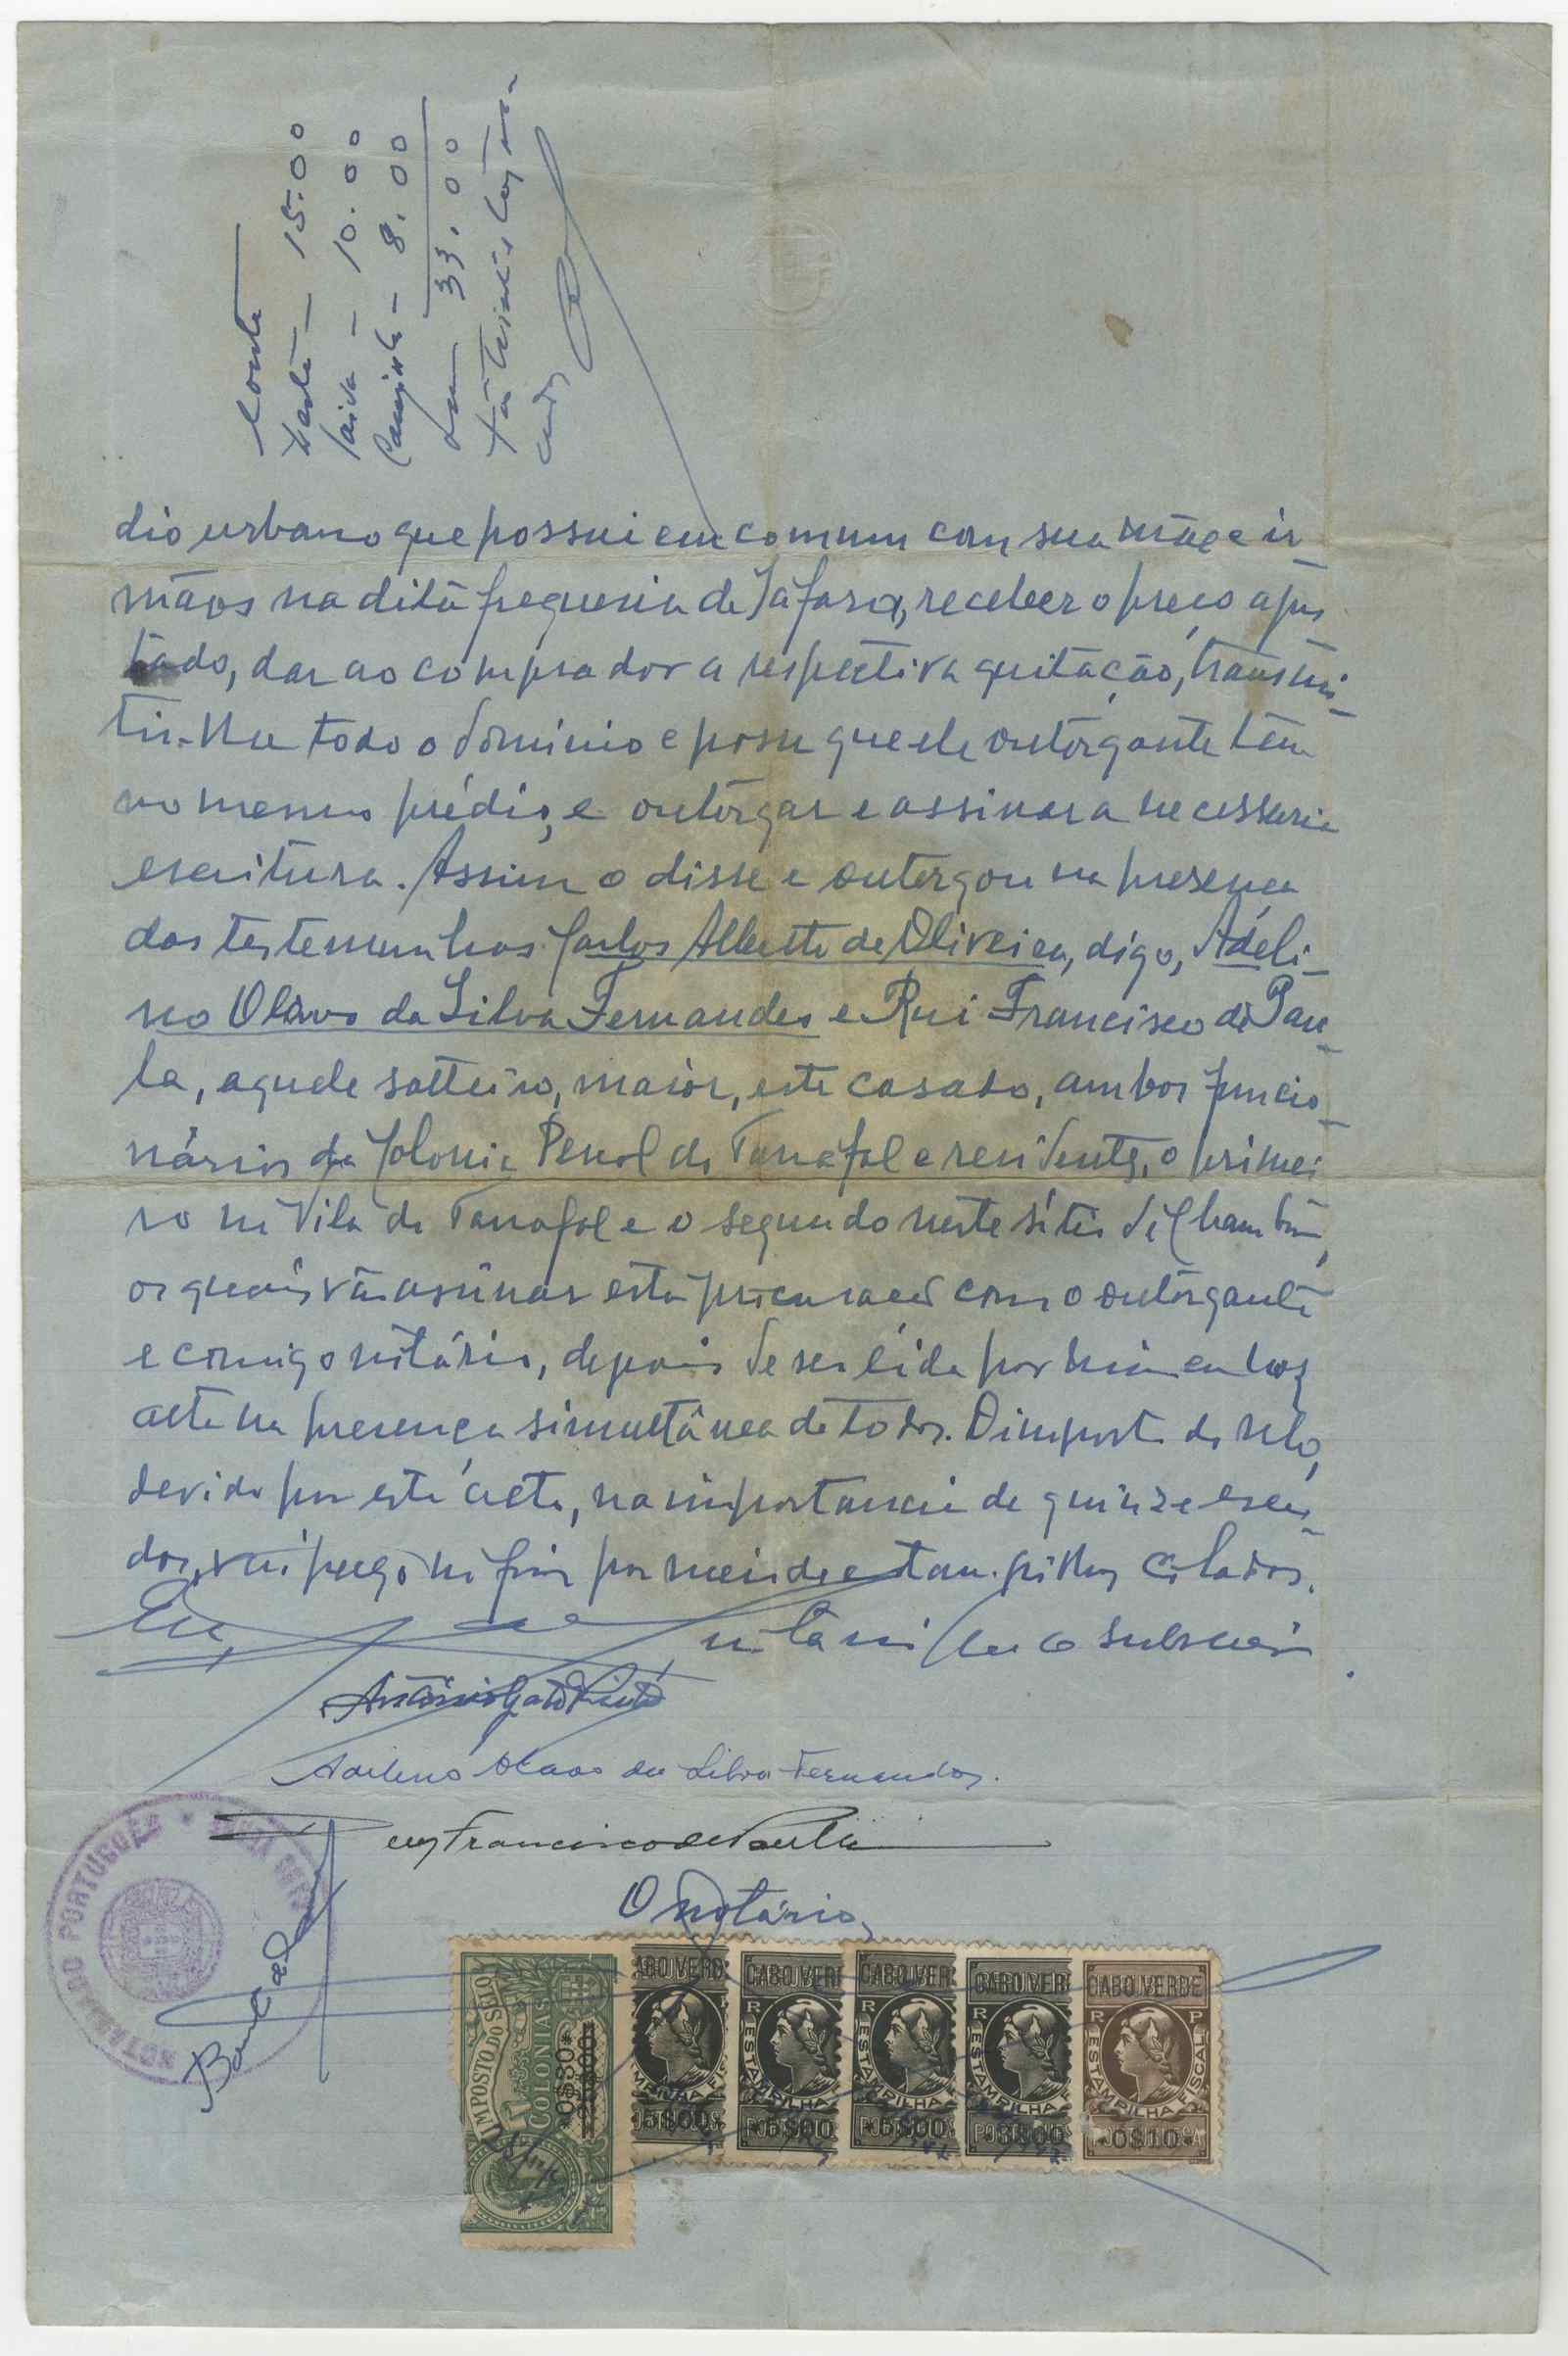 Conta
15.00
10.00
8.00
33.00
dio urbano que possui em comum com sua mãe e ir-
mãos na dita freguesia de Safara, receber o preço ajus-
tado, dar ao comprador a respectiva quitação, transmi-
tir-lhe todo o dominio e posse que ele outorgante tem
no mesmo prédio, e outorgar e assinar a necessaria
escritura. Assim o disse e outorgou na presença
das testemunhas Carlos Alberto de Oliveira, digo, Adeli-
no Olavo da Silva Fernandes e Rui Francisco de Pau-
la, aquele solteiro, maior, este casado, ambos funcio-
nários da Colonia Penal de Tarrafal e residentes, o primei-
ro na Vila de Tarrafal e o segundo neste sítio de Chambom,
os quais vão assinar esta procuração com o outorgante
e comigo notário, depois de ser lida por mim em voz
alta na presença simultânea de todos. O importe do selo,
devido por este acto, na importancia de quinze escu-
dos, vai pago no fim por meio de estampilhas coladas.
Eu, notario que o subscrevi.
António Gato Pinto
Adelino Olavo da Silva Fernandes.
Ruy Francisco de Paula
O notário,
NOTARIADO PORTUGUÊS
IMPOSTO DO SELO
COLONIAS
0$30
CABO VERDE
ESTAMPILHA FISCAL
5$00
CABO VERDE
ESTAMPILHA
5$00
CABO VERDE
ESTAMPILHA
5$00
CABO VERDE
ESTAMPILHA
3$00
CABO VERDE
R P
ESTAMPILHA FISCAL
0$10